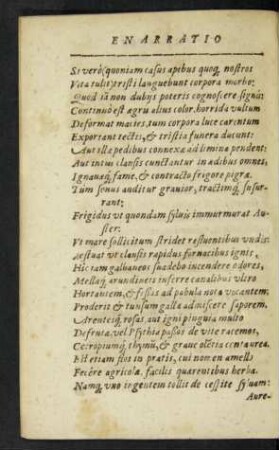 ENARRATIO
Si verò (quoniam casus apibus quoq, nostros
Vita tulit) tristi languebunt corpora morbo:
Quod iã non dubijs poteris cognoscere signis:
Continuò est ægris alius color. horrida vultum
Deformat macies, tum corpora luce carentum
Exportant tectis, & tristia funera ducunt:
Aut illæ pedibus connexæ ad limina pendent:
Aut intus clausis cunctantur in ædibus omnes,
Ignauæq, fame, & contracto frigore pigræ.
Tum sonus auditur grauior, tractimq, susur-
rant:
Frigidus vt quondam syluis immurmurat Au-
ster:
Vt mare sollicitum stridet refluentibus vndis:
Æstuat vt clausis rapidus fornacibus ignis.
Hic iam galbaneos suadebo incendere odores,
Mellaq, arundineis inferre canalibus vltro
Hortantem, & fessas ad pabula nota vocantem:
Proderit & tunsum gallæ admiscere saporem,
Arentesq, rosas. aut igni pinguia multo
Defruta, vel Psythia passos de vite racemos,
Cecropiumq, thymũ, & graue olẽtia centaurea.
Est etiam flos in pratis, cui nomen amello
Fecêre agricolæ. facilis quærentibus herba.
Namq, vno ingentem tollit de cespite syluam:
Aure-